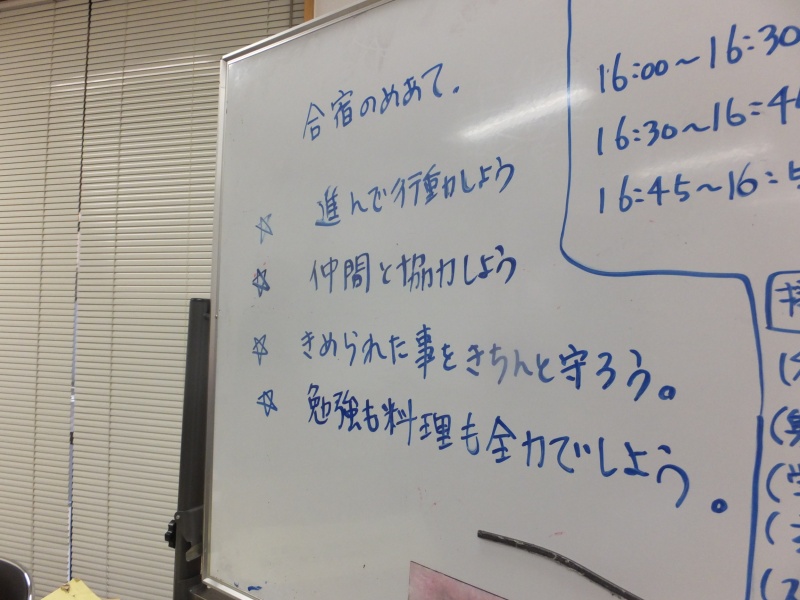 合宿のめあて.
☆ 進んで行動しよう
☆ 仲間と協力しよう
☆ きめられた事をきちんと守ろう。
☆ 勉強も料理も全力でしよう。
16:00～16:30
16:30～16:4
16:45～16:5